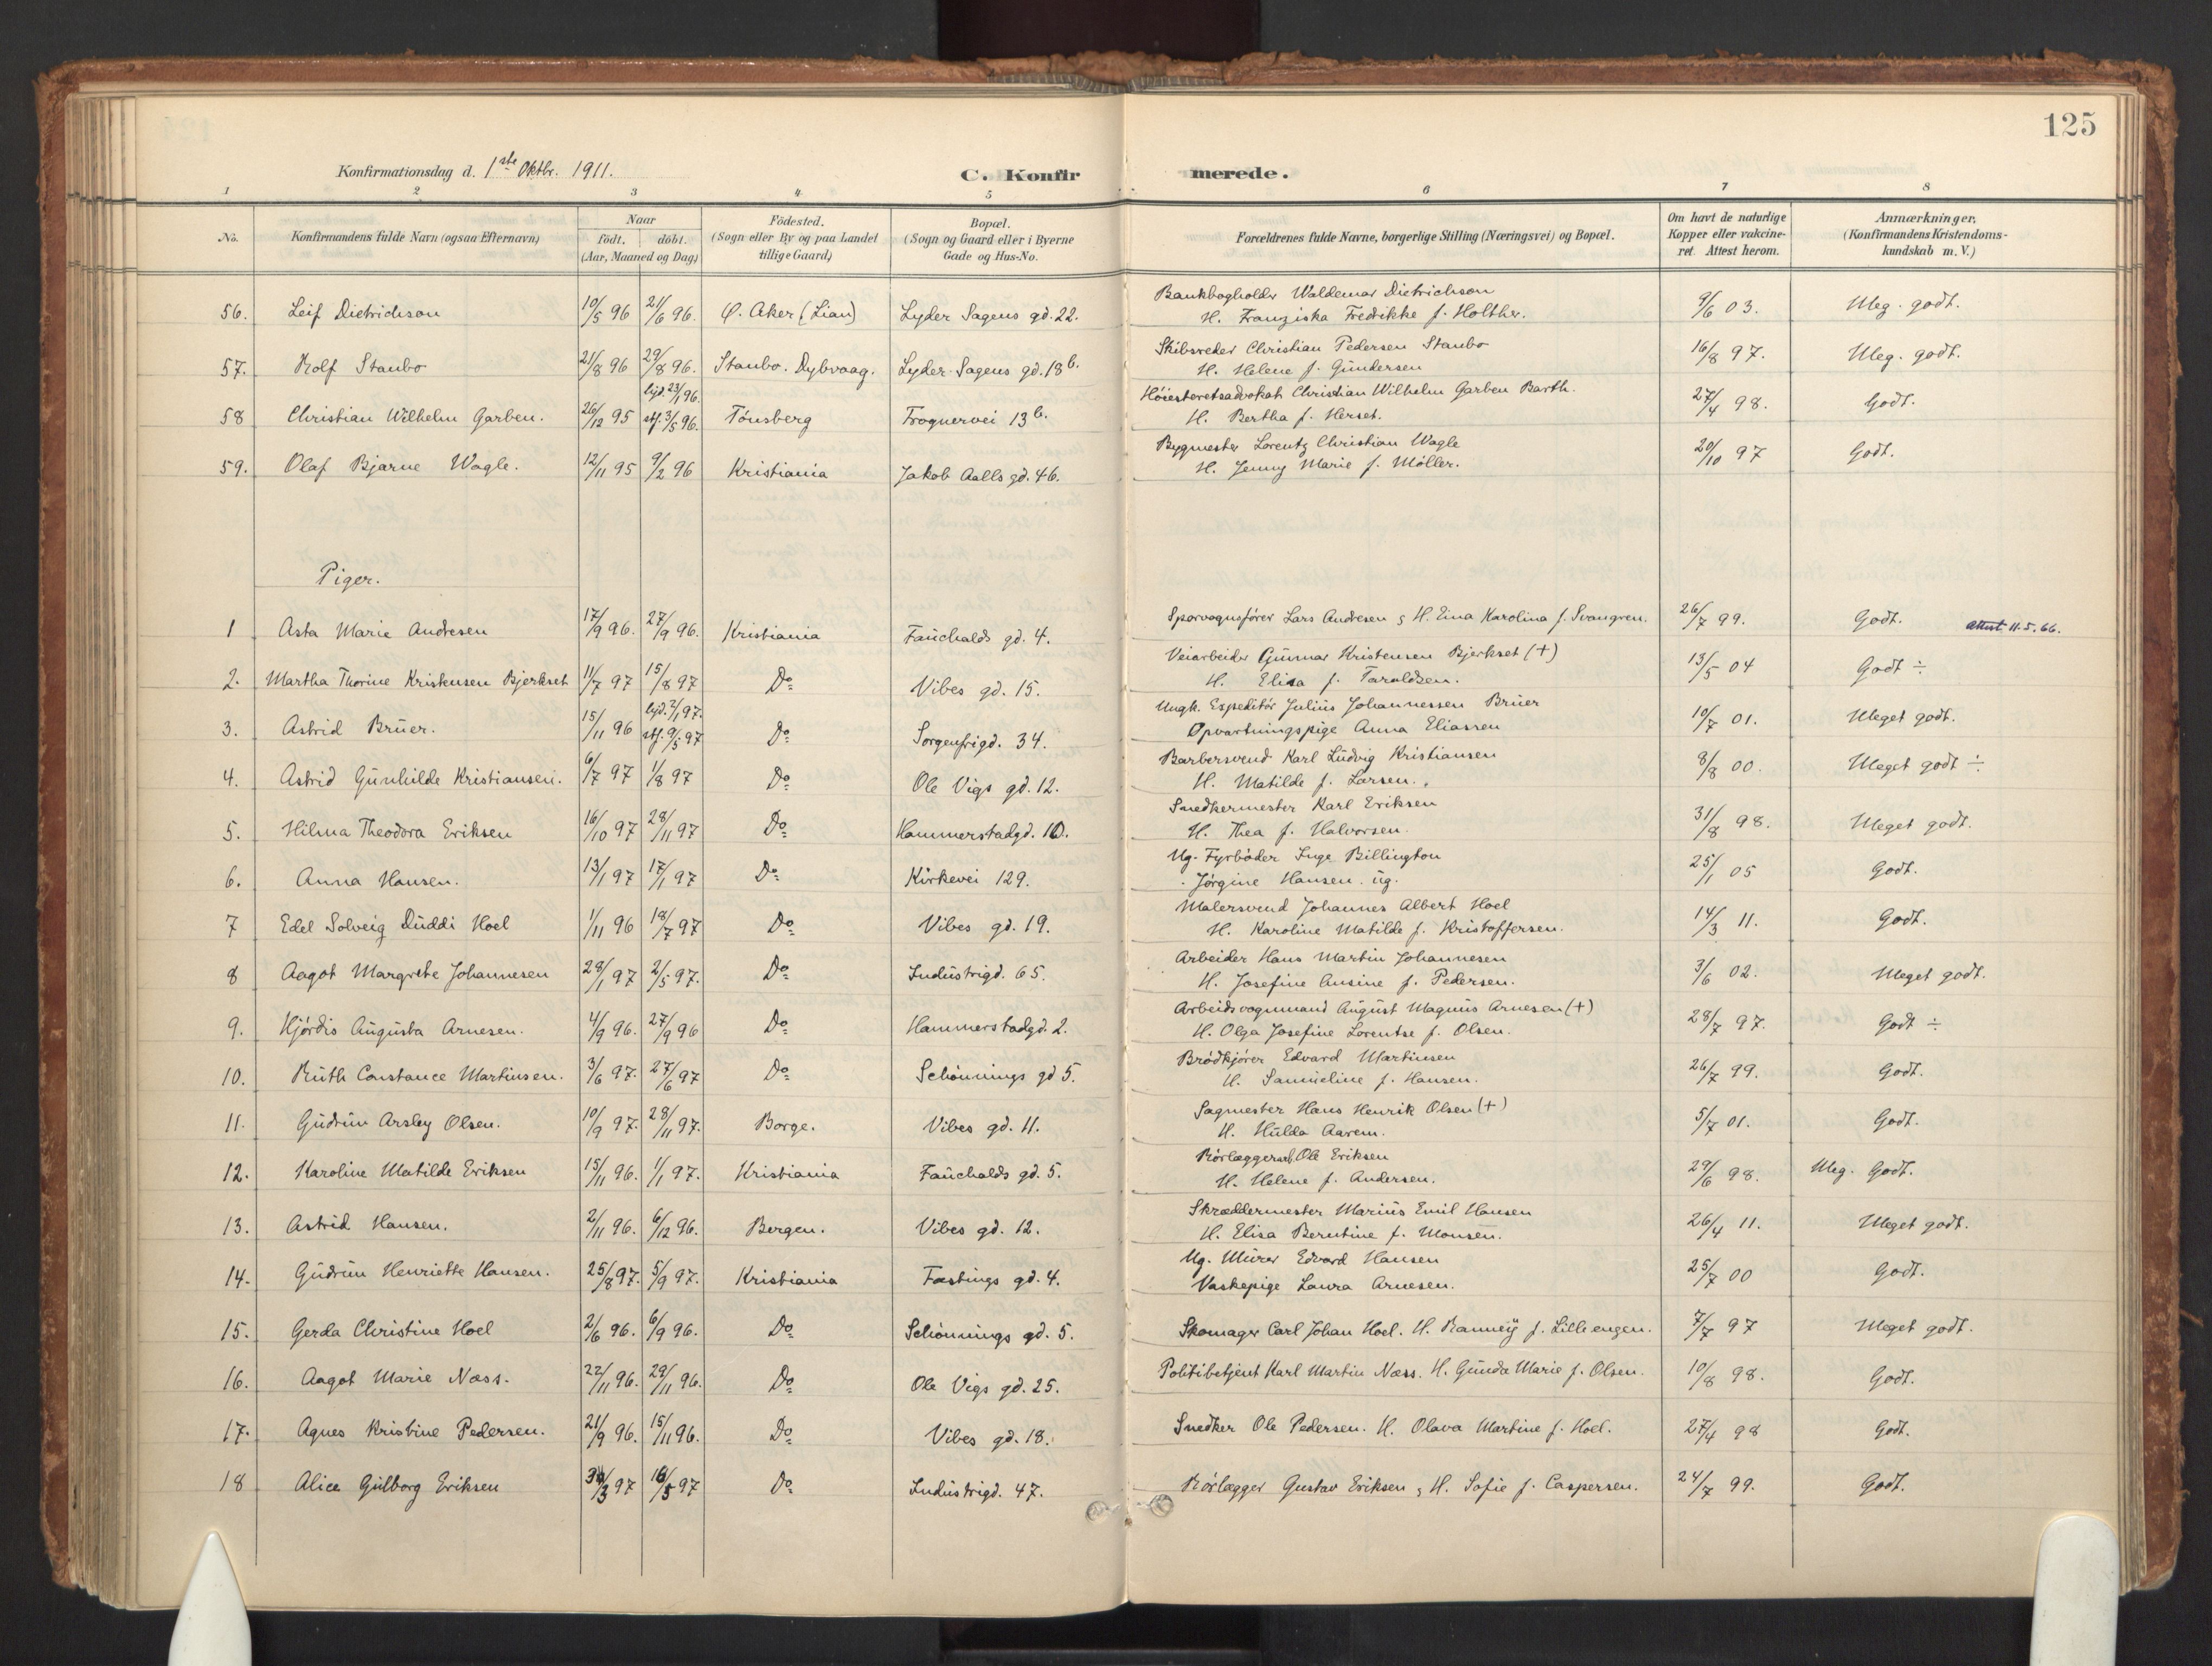 125
Konfirmationsdag d. 1ste Oktbr. 1911. C. Konfirmerede.
1 2 3 4 5 6 7 8
No. Konfirmandens fulde Navn (ogsaa Efternavn) Naar födt. döbt. (Aar, Maaned og Dag) Födested. (Sogn eller By og paa Landet tillige Gaard) Bopæl. (Sogn og Gaard eller i Byerne Gade og Hus-No. Forældrenes fulde Navne, borgerlige Stilling (Næringsvei) og Bopæl. Om havt de naturlige Kopper eller vakcineret. Attest herom. Anmærkninger. (Konfirmandens Kristendomskundskab m. V.)
56. Leif Dietrichson 10/5 96 21/6 96. Ö. Aker (Lian) Lyder Sagens gd. 22. Bankbogholder Waldemar Dietrichson 9/6 03. Meg. godt.
H. Franziska Fredrikke f. Holther.
57. Rolf Staubo 21/8 96 29/8 96. Staubo. Dybvaag. Lyder Sagens gd. 18b. Skibsreder Christian Pedersen Staubo 16/8 97. Meg. godt.
H. Helene f. Gundersen
58 Christian Wilhelm Garben. 26/12 95 hjd. 23/1 96. stf. 3/5 96. Tönsberg Frognervei 13b. Höiesteretsadvokat Christian Wilhelm Garben Barth. 27/4 98. Godt.
H. Bertha f. Herset.
59. Olaf Bjarne Wagle. 12/11 95 9/2 96 Kristiania Jakob Aalls gd. 46. Bygmester Lorentz Christian Wagle 20/10 97 Godt.
H. Jenny Marie f. Möller.
Piger.
1 Asta Marie Andresen 17/9 96. 27/9 96. Kristiania Fauchalds gd. 4. Sporvognsförer Lars Andresen & H. Eina Karolina f. Svangren. 26/7 99. Godt. Attest 11.5.66.
2. Martha Thorine Kristensen Bjerkset 11/7 97 15/8 97 Do Vibes gd. 15. Veiarbeider Gunnar Kristensen Bjerkset (+) 13/5 04 Godt ÷
H. Elisa f. Taraldsen.
3. Astrid Bruer. 15/11 96 hjd. 2/1 97. stf. 9/5 97 Do Sorgenfrigd. 34. Ungk. Espeditör Julius Johannessen Bruer 10/7 01. Meget godt.
Opvartningspige Anna Eliassen
4. Astrid Gunhilde Kristiansen. 6/7 97 1/8 97 Do Ole Vigs gd. 12. Barbersvend Karl Ludvig Kristiansen 8/8 00. Meget godt ÷
H. Matilde f. Larsen.
5. Hilma Theodora Eriksen 16/10 97 28/11 97 Do Hammerstadgd. 10. Snedkermester Karl Eriksen 31/8 98. Meget godt.
H. Thea f. Halvorsen.
6. Anna Hansen. 13/1 97 17/1 97 Do Kirkevei 129. Ug. Fyrböder Inge Billington 25/1 05 Godt.
Jörgine Hansen. ug.
7 Edel Solveig Duddi Hoel 1/11 96 18/7 97 Do Vibes gd. 19. Malersvend Johannes Albert Hoel 14/3 11. Godt.
H. Karoline Matilde f. Kristoffersen.
8 Aagot Margrete Johannesen 28/1 97 2/5 97. Do Industrigd. 65. Arbeider Hans Martin Johannesen 3/6 02. Meget godt.
H. Josefine Ansine f. Pedersen.
9. Hjördis Augusta Arnesen. 4/9 96. 27/9 96 Do Hammerstadgd. 2. Arbeidsvognmand August Magnus Arnesen (+) 28/7 97. Godt ÷
H. Olga Josefine Lorentse f. Olsen.
10. Ruth Constance Martinsen. 3/6 97. 27/6 97 Do Schönnings gd 5. Brödkjörer Edvard Martinsen 26/7 99. Godt.
H. Samueline f. Hansen.
11. Gudrun Arsley Olsen. 10/9 97. 28/11 97. Borge. Vibes gd. 11. Sagmester Hans Henrik Olsen (+) 5/7 01. Godt.
H. Hulda Aarem.
12. Karoline Matilde Eriksen 15/11 96. 1/1 97. Kristiania Fauchalds gd. 5. Rörlæggerarb. Ole Eriksen 29/6 98. Meg. Godt.
H. Helene f. Andersen.
13. Astrid Hansen. 2/11 96. 6/12 96. Bergen. Vibes gd. 12. Skræddermester Marius Emil Hansen 26/4 11. Meget godt.
H. Elisa Berntine f. Monsen.
14. Gudrun Henriette Hansen. 25/8 97. 5/9 97. Kristiania Fastings gd. 4. Ug. Murer Edvard Hansen 25/7 00 Godt.
Vaskepige Laura Arnesen.
15. Gerda Christine Hoel 2/6 96. 6/9 96. Do Schönnings gd. 5. Skomager Carl Johan Hoel. H. Ranney f. Lilleengen. 7/7 97 Meget godt.
16. Aagot Marie Næss. 22/11 96. 29/11 96. Do Ole Vigs gd. 25. Politibetjent Karl Martin Næss. H. Gunda Marie f. Olsen. 10/8 98. Godt.
17. Agnes Kristine Pedersen. 21/9 96. 15/11 96. Do Vibes gd. 18. Snedker Ole Pedersen. H. Olava Martine f. Hoel. 27/4 98 Godt.
18 Alice Gulborg Eriksen /3 97 16/5 97 Do Industrigd. 47. Rörlægger Gustav Eriksen & H. Sofie f. Caspersen. 24/7 99. Godt.